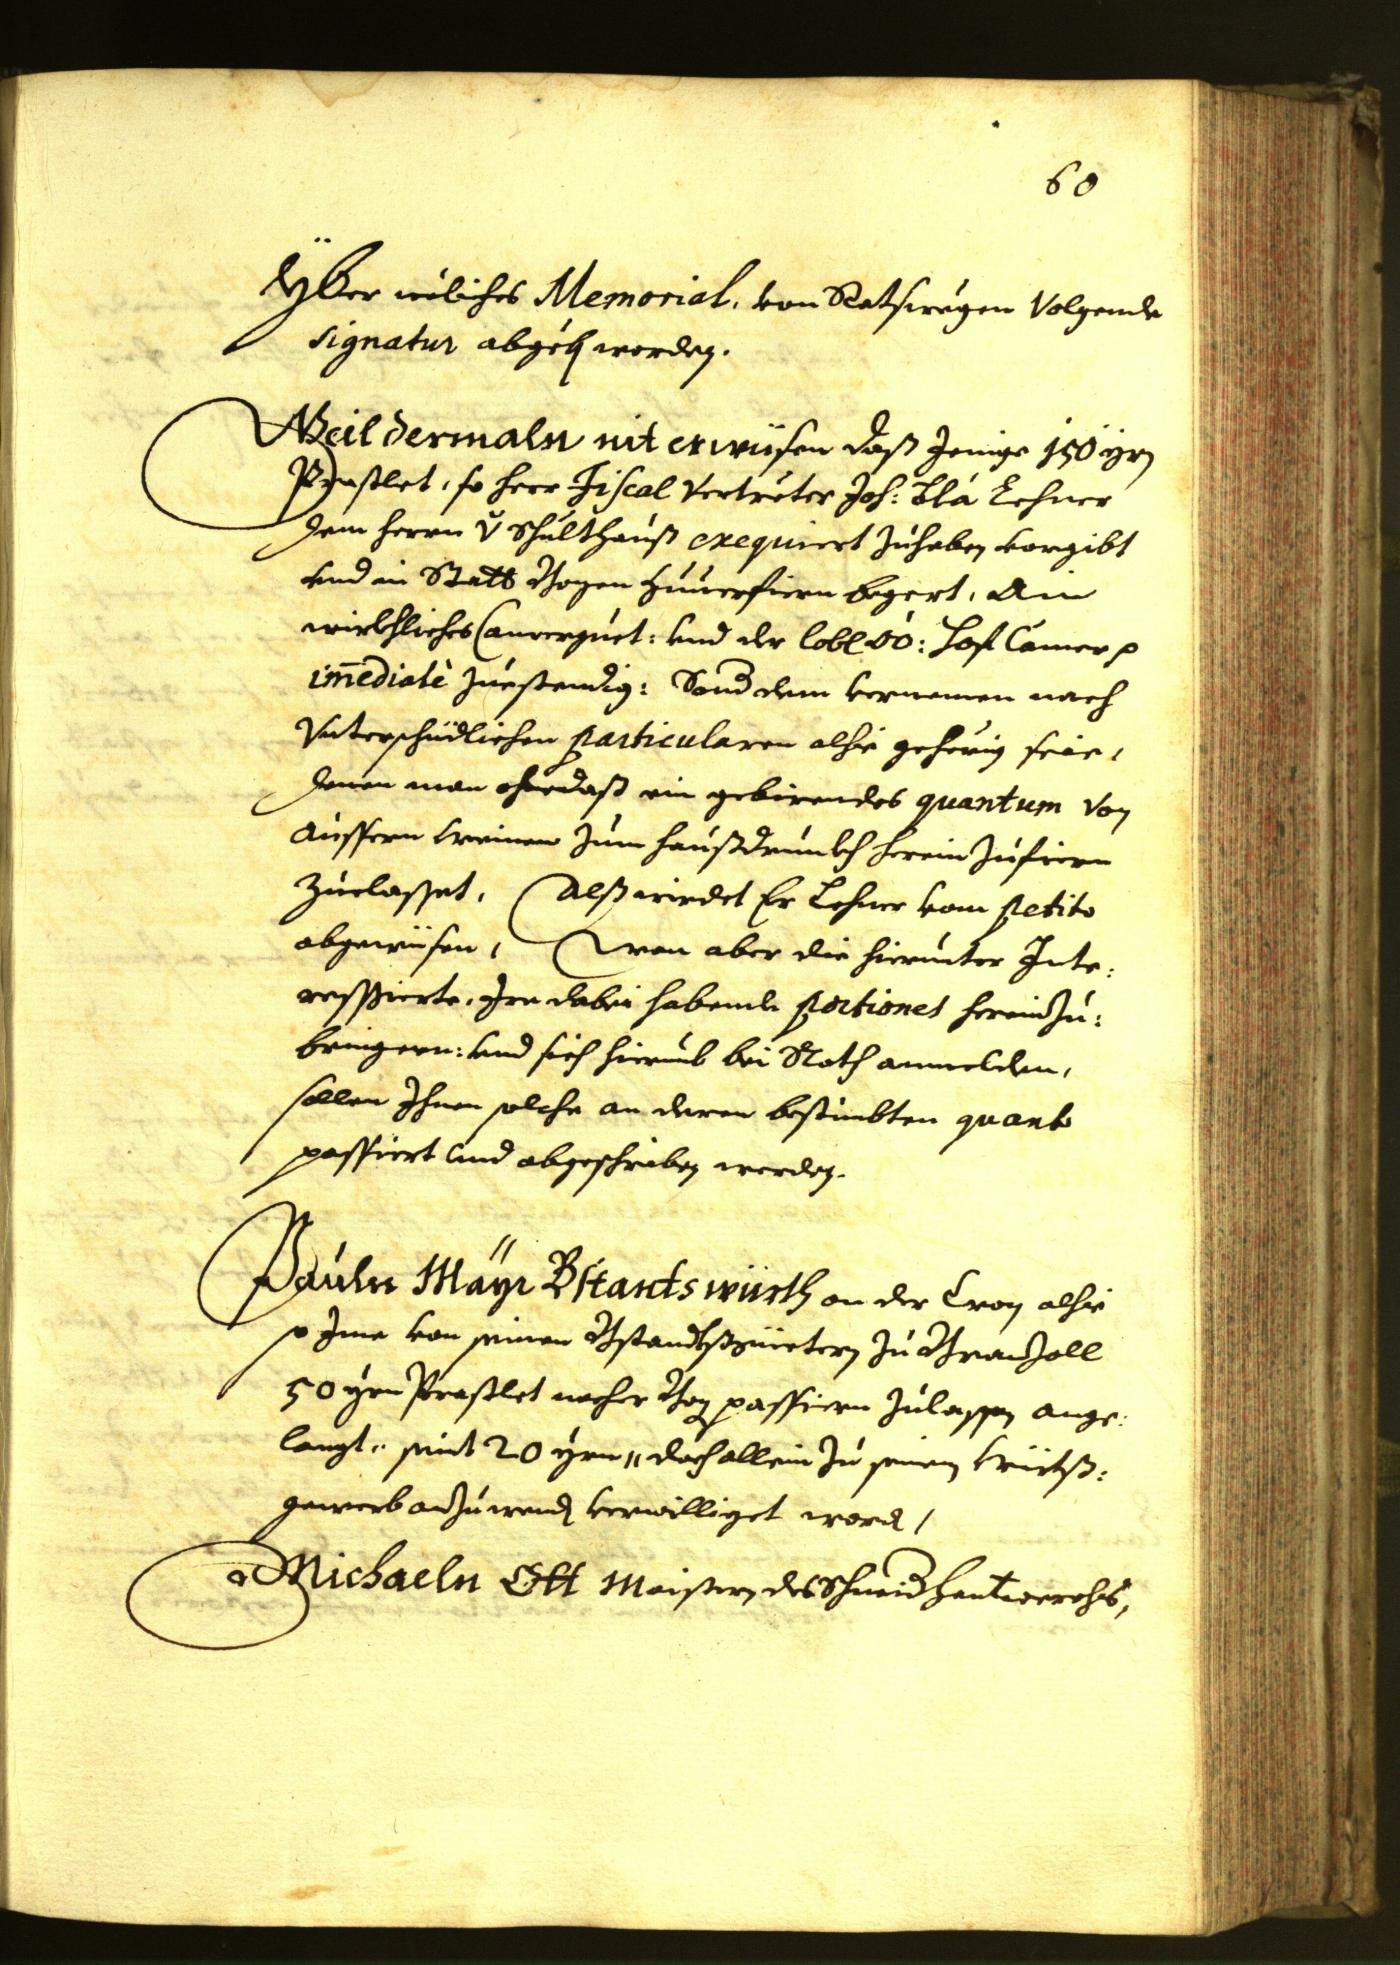 60
Yber weliches Memorial, von Ratswegen Volgende
signatur abgeben worden.
Weil dermaln nit erwisen daß Jenige 150 Yrn
Praßlet, so herr Fiscal Vertreter Joh: Bla Lehner
dem herrn V Schulthauß exequiert zuhaben vorgibt
vnd in Statt Bozen zuuerfiern begert, Ain
wirkhliches Camerguet: vnd der lobl OÖ: Hof Camer p
immediatè zuestendig: Sonder dem vernemen nach
Vnterschidlichen particularen alhie geherig seie,
denen man ohnedaß ein gebirendes quantum von
aussern weinen zum haußdrunkh herein zufiern
zuelasset, Alß wirdet Er Lehner vom petito
abgewisen, Wan aber die hierunter Inte:
ressierte, Jre dabei habende portiones herein zu:
bringen: vnd sich hierumb bei Rath anmelden,
sollen Ihnen solche an deren bestimbten quanto
passiert vnd abgeschriben werden.
Pauln Mayr Bstantswürth an der Cron alhie
so Jme von seinen Bstandtßgüetern zu Branzoll
50 Yrn Praßlet nacher Bozen passiern zulassen ange:
langt, seint 20 Yrn, doch allein zu seinem Würtß:
gewerb anzuwenden verwilliget worden,
Michaeln Ott Maistern des Schneider hantwerchs,